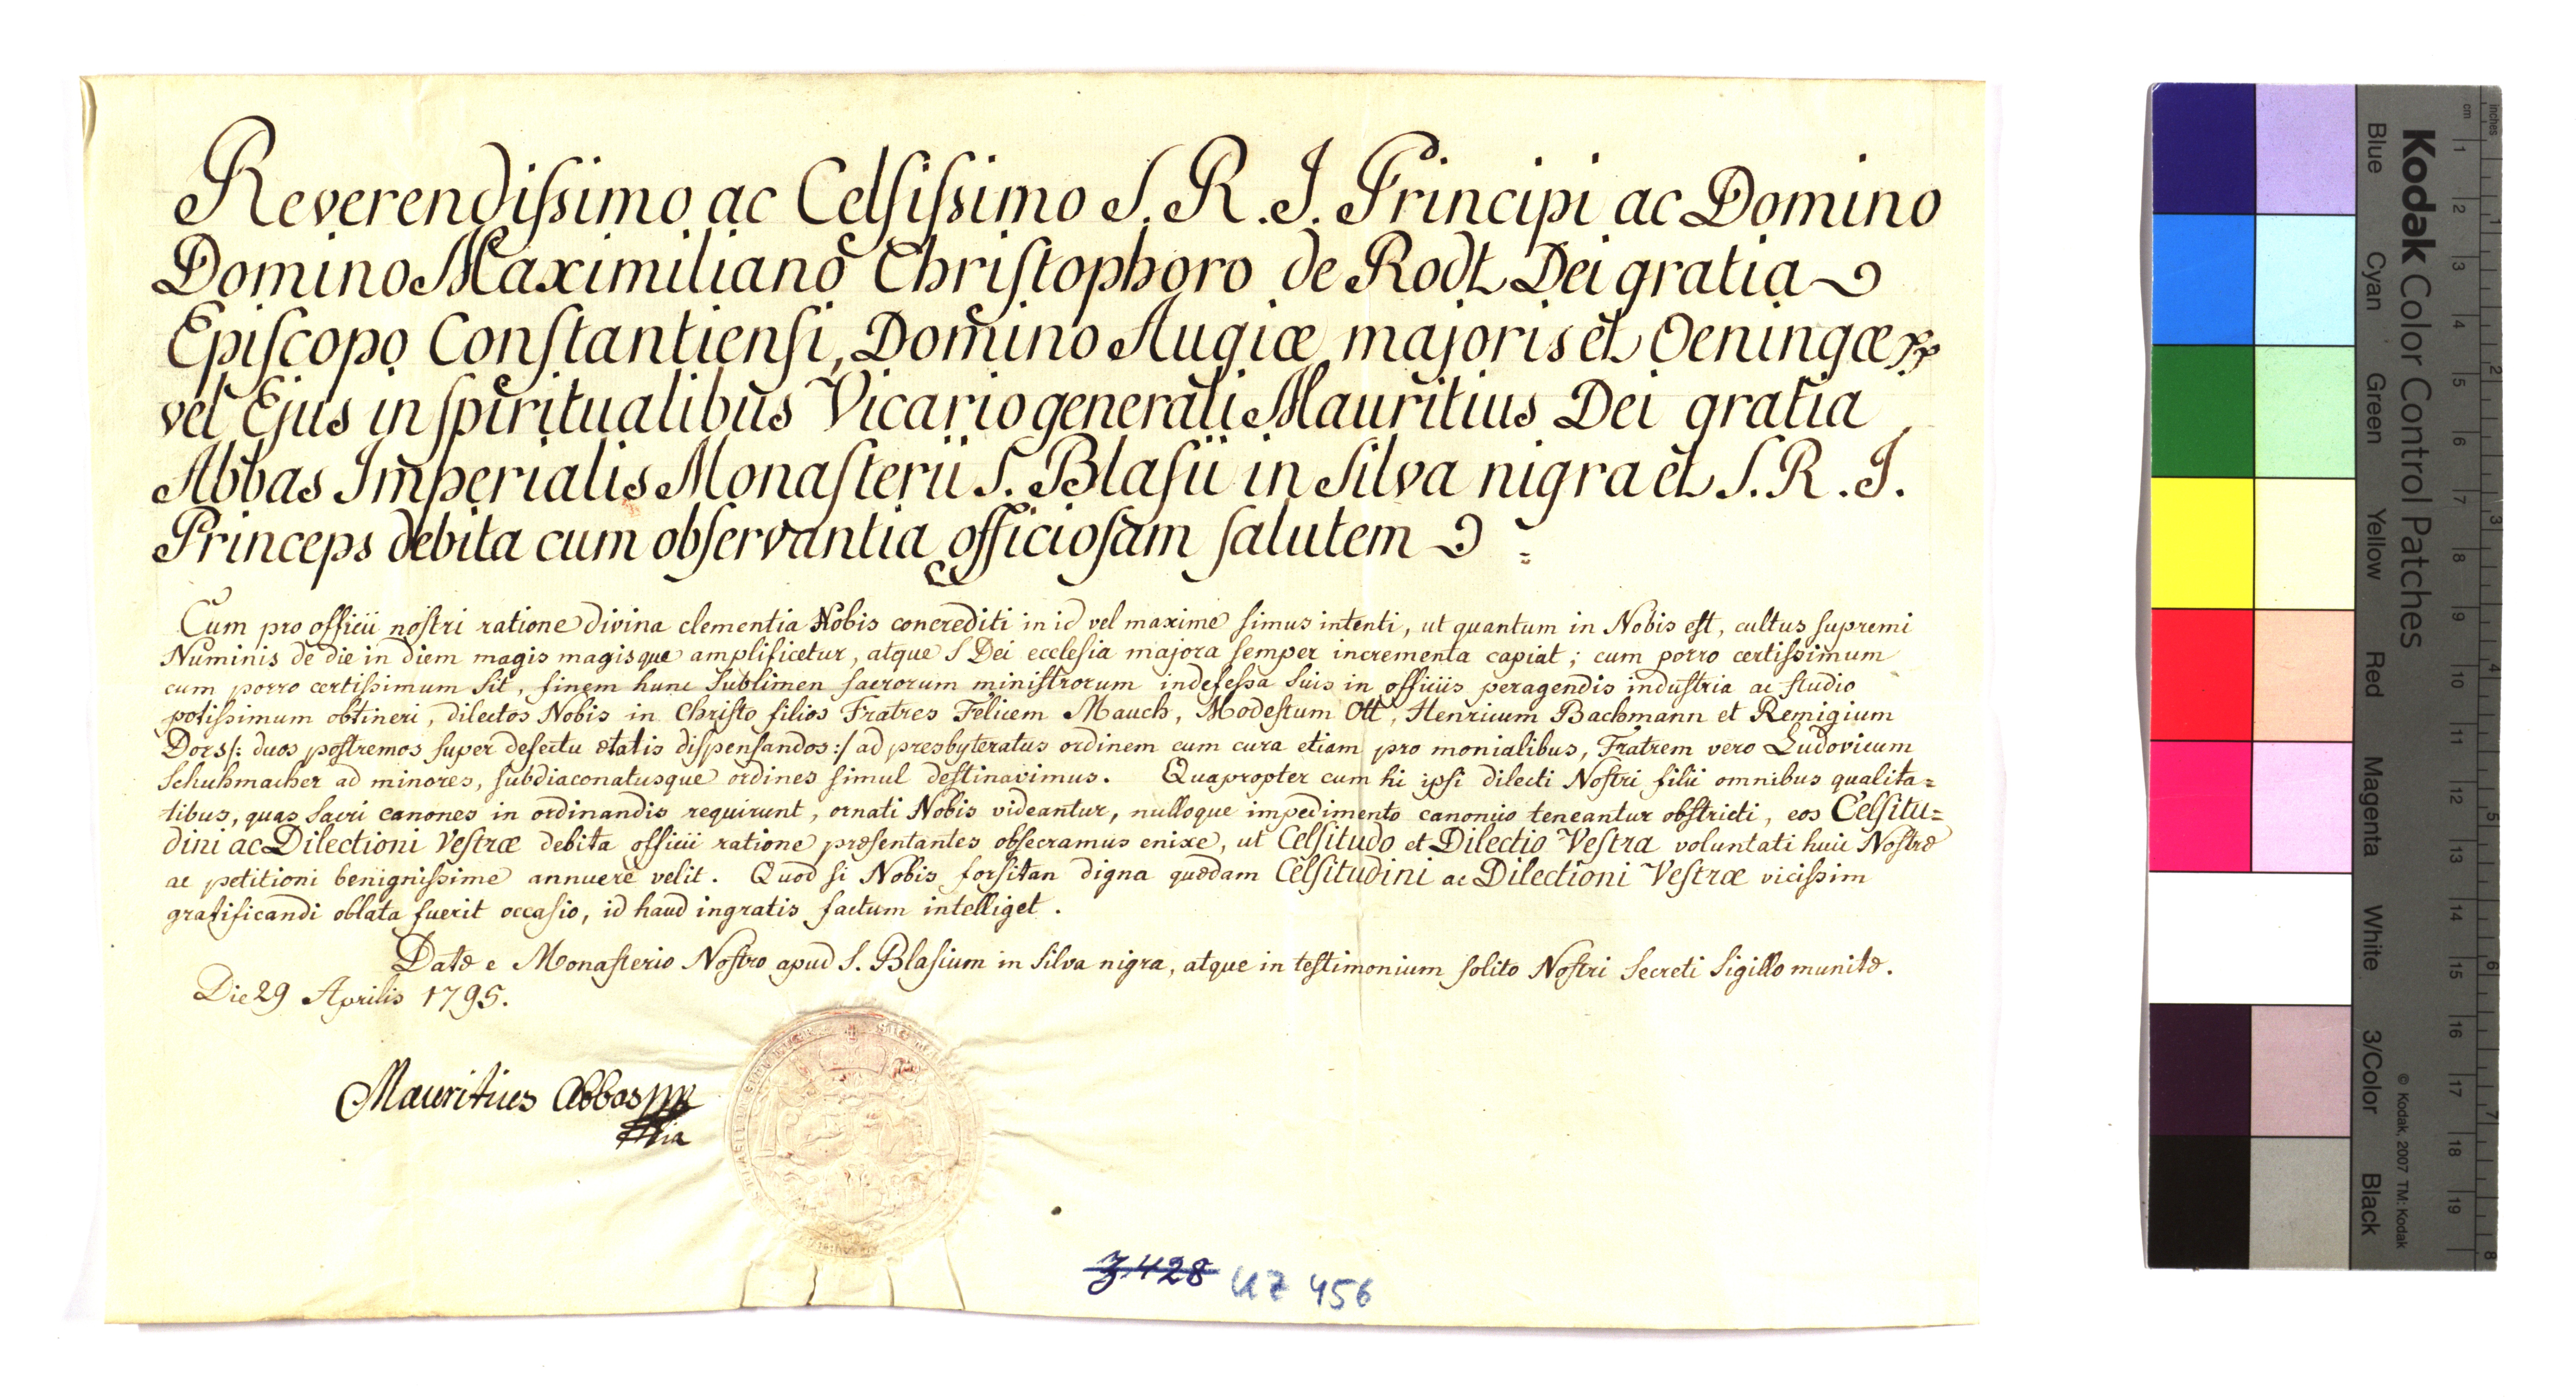 Reverendiſsimo ac Celſiſsimo S. R. I. Principi ac Domino
Domino Maximiliano Chriſtophoro de Rodt Dei gratia
Epiſcopo Conſtantienſi, Domino Augiæ majoris et Oeningæ
vel Ejus in ſpiritualibus Vicario generali Mauritius Dei gratia
Abbas Imperialis Monaſterii S. Blaſii in Silva nigra et S. R. I.
Princeps debita cum obſervantia officioſam ſalutem
Cum pro officii noſtri ratione divina clementia Nobis concrediti in id vel maxime ſimus intenti, ut quantum in Nobis eſt, cultus ſupremi
Numinis de die in diem magis magisque amplificetur, atque S Dei eccleſia majora ſemper incrementa capiat; cum porro certiſsimum
cum porro certiſsimum ſit, finem hunc ſublimen ſacrorum miniſtrorum indefeſsa ſuis in officiis peragendis induſtria ac ſtudio
potiſsimum obtineri, dilectos Nobis in Chriſto filios Fratres Felicem Mauch, Modeſtum Ott, Henricum Bachmann et Remigium
Dors/: duos poſtremos ſuper defectu ætatis diſpenſandos:/ ad presbyteratus ordinem cum cura etiam pro monialibus, Fratrem vero Ludovicum
Schuhmacher ad minores, ſubdiaconatusque ordines ſimul deſtinavimus. Quapropter cum hi ipſi dilecti Noſtri filii omnibus qualita=
tibus, quas ſacri canones in ordinandis requirunt, ornati Nobis videantur, nulloque impedimento canonico teneantur obſtricti, eos Celſitu=
dini ac Dilectioni Veſtræ debita officii ratione præſentantes obſecramus enixe, ut Celſitudo et Dilectio Veſtra voluntati huic Noſtræ
ac petitioni benigniſsime annuere velit. Quod ſi Nobis forſitan digna quædam Celſitudini ac Dilectioni Veſtræ viciſsim
gratificandi oblata fuerit occaſio, id haud ingratis factum intelliget.
Datæ e Monaſterio Noſtro apud S. Blaſium in Silva nigra, atque in teſtimonium ſolito Noſtri Secreti Sigillo munitæ.
Die 29 Aprilis 1795.
Mauritius Abbas
Z 428 UZ 456
Kodak Color Control Patches
Blue Cyan Green Yellow Red Magenta White 3/Color Black
© Kodak, 2007 TM: Kodak
inches 1 2 3 4 5 6 7 8
cm 1 2 3 4 5 6 7 8 9 10 11 12 13 14 15 16 17 18 19